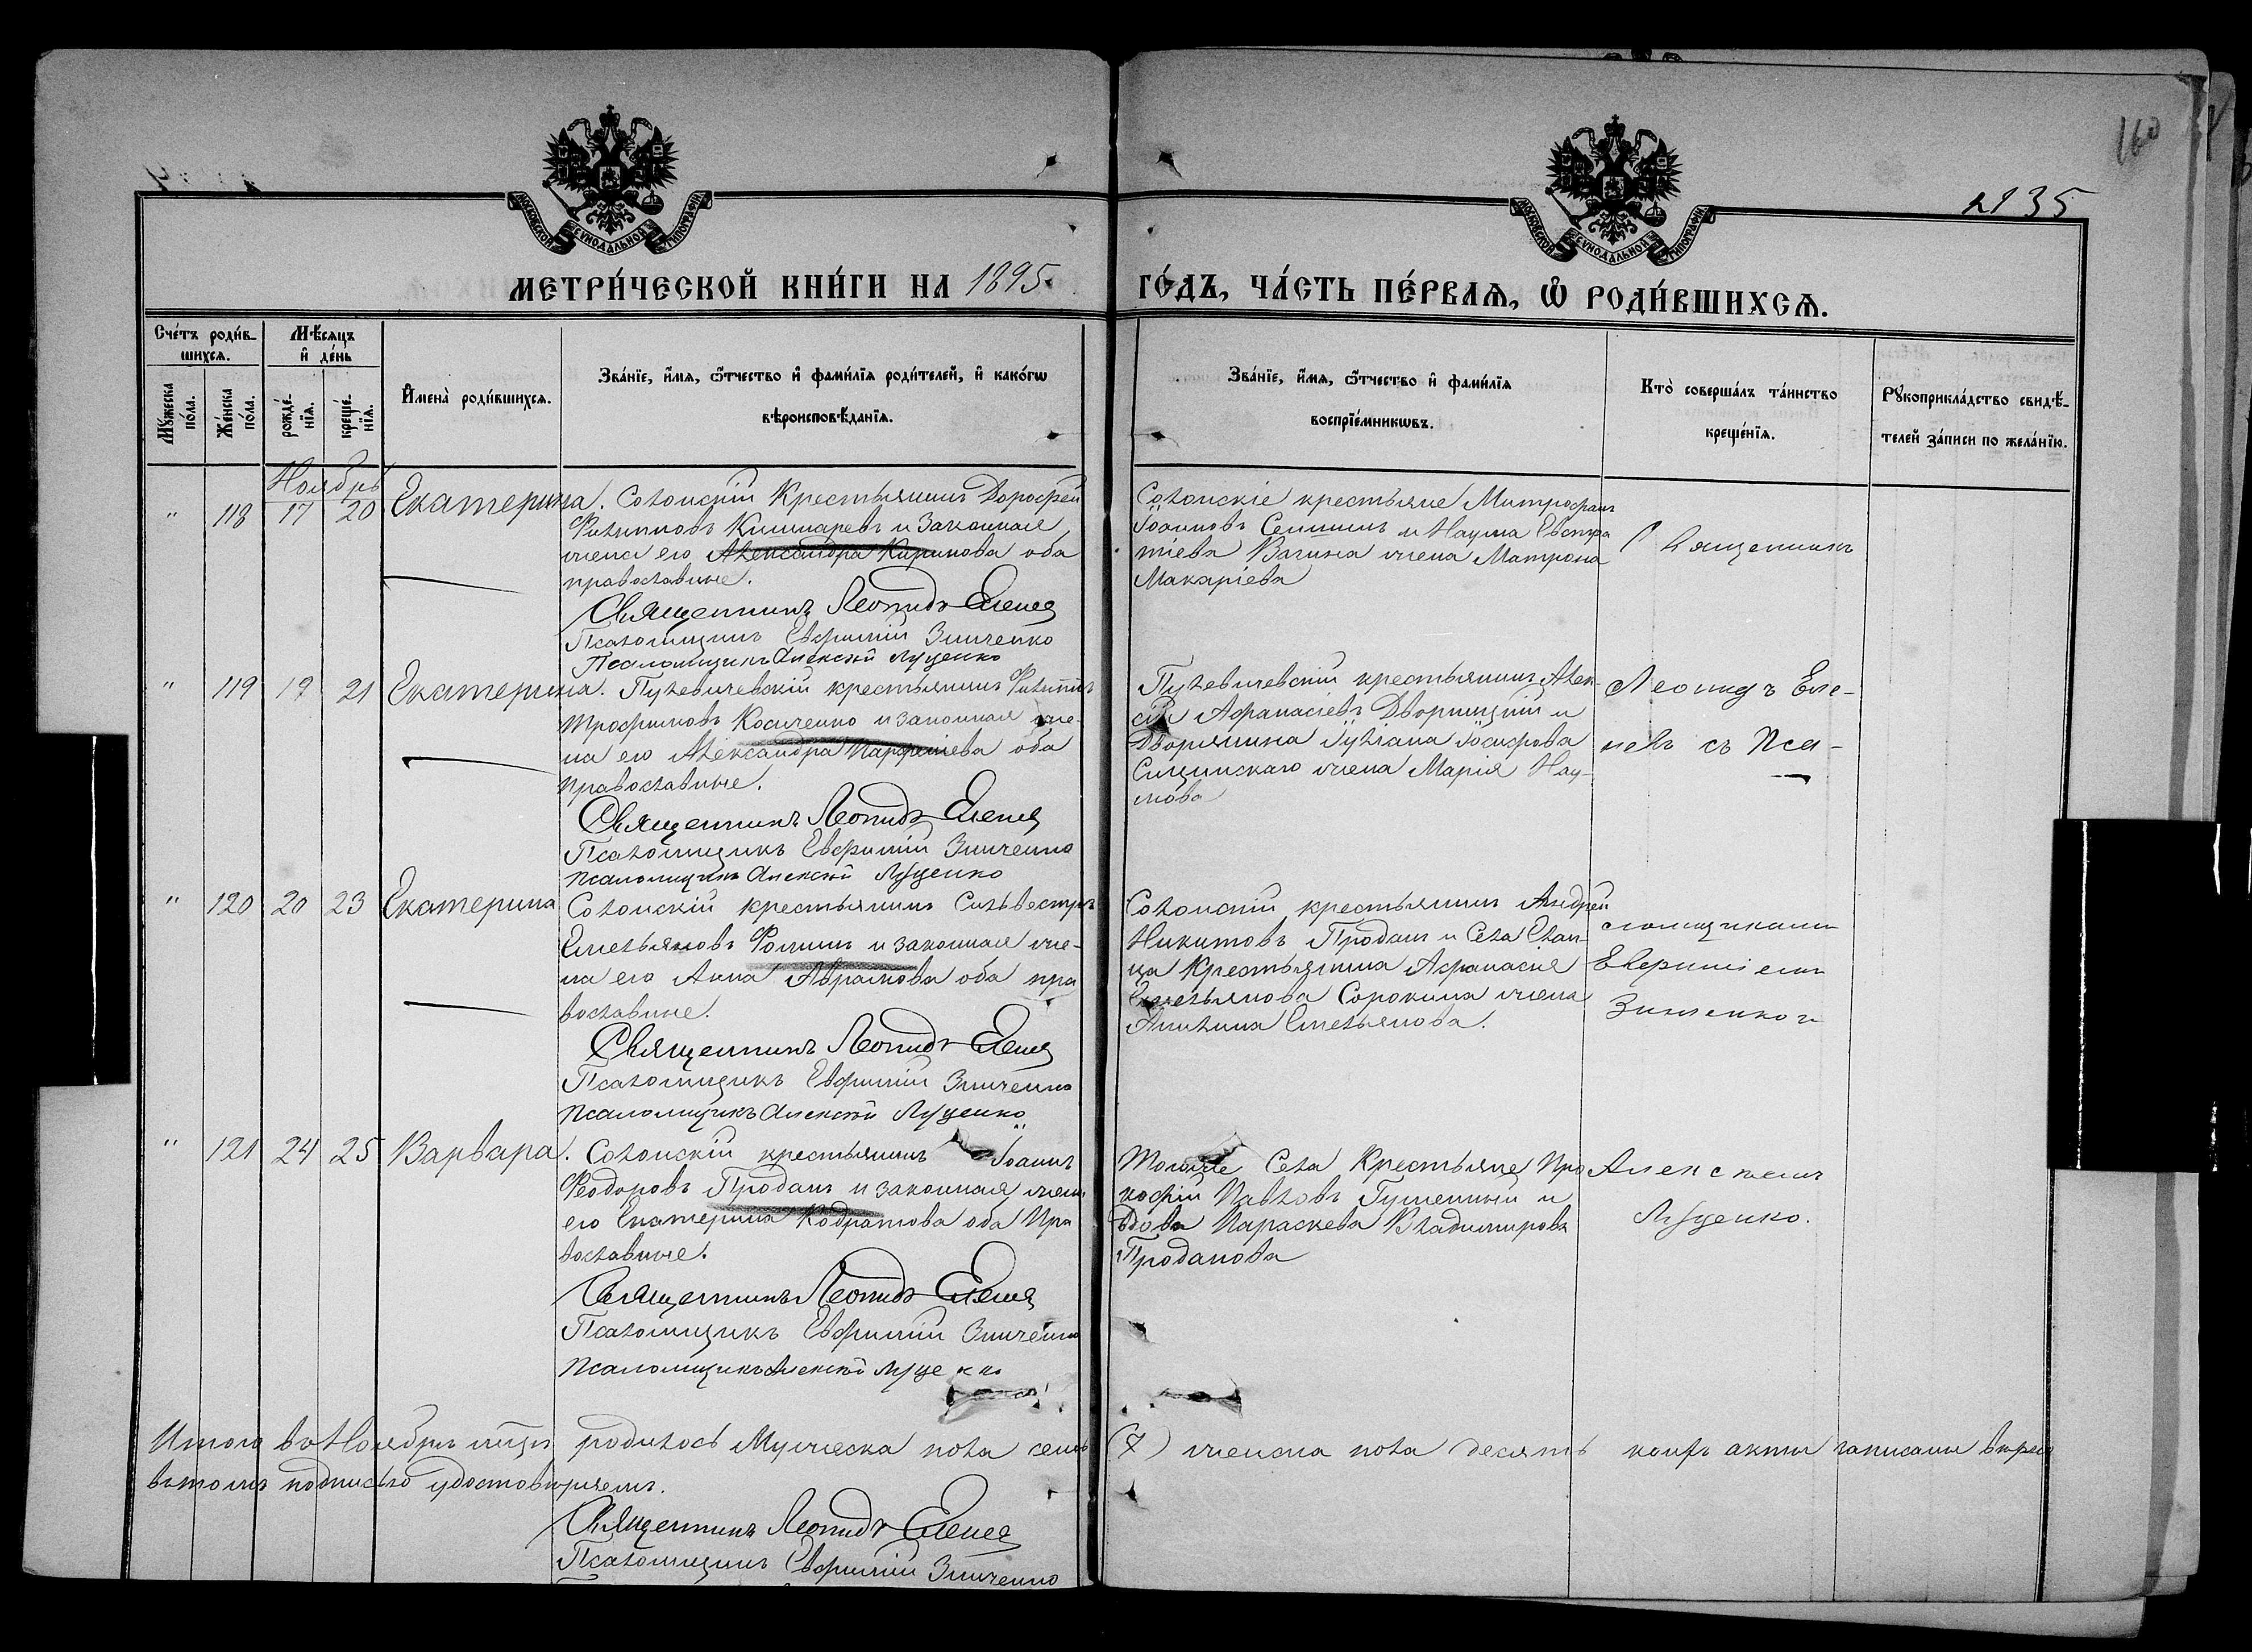 160
2135
МОСКОВСКОЙ СѴНОДАЛЬНОЙ ТИПОГРАФІИ
МОСКОВСКОЙ СѴНОДАЛЬНОЙ ТИПОГРАФІИ
МЕТРИ́ЧЕСКОЙ КНИ́ГИ НА 1895
ГО́ДЪ, ЧА́СТЬ ПЕ́РВАѦ, Ѿ РОДИ́ВШИХСѦ.
Сче́тъ роди́в-
шихсѧ.
Мѣ́сѧцъ
и҆ де́нь
Мꙋ́жеска по́ла.
Же́нска по́ла.
рожде́-нїѧ.
креще́-нїѧ.
И҆мена̀ роди́вшихсѧ.
Зва́нїе, и҆́мѧ, ѻ҆́тчество и҆ фами́лїѧ роди́телей, и҆ како́гѡ
вѣроисповѣ́данїѧ.
Зва́нїе, и҆́мѧ, ѻ҆́тчество и҆ фами́лїѧ
воспрїе́мникѡвъ.
Кто̀ соверша́лъ та́инство
креще́нїѧ.
Рꙋкоприкла́дство свидѣ́-
телей за́писи по жела́нїю.
Ноябрь
" 118 17 20 Екатерина. Солонскій Крестьянинъ Дорофей
Филиповъ Кишкаревъ и Законная
жена его Александра Карпова оба
православные.
Священникъ Леонидъ Еленев
Псаломщикъ Евфимій Зинченко
Псаломщикъ Алексѣй Луценко
Солонскіе крестьяне Митрофанъ
Іоановъ Семинъ и Наума Евстра
тіева Вагина жена Матрона
Макаріева
Священникъ
" 119 19 21 Екатерина. Пулевичевскій крестьянинъ Филипъ
Трофимовъ Косиченко и законная же-
на его Александра Парфеніева оба
православные.
Священникъ Леонидъ Еленев
Псаломщикъ Евфимій Зинченко
Псаломщикъ Алексѣй Луценко
Пулевичевскій крестьянинъ Алек-
сѣй Афанасіевъ Дворницкій и
Дворянина Іуліана Іосифова
жена Марія Нау-
мова
Леонидъ Еле-
невъ съ Пса-
" 120 20 23 Екатерина Солонскій крестьянинъ Сильвестръ
Емельяновъ Фоминъ и законная же-
на его Анна Авраамова оба пра
вославные.
Священникъ Леонидъ Еленев
Псаломщикъ Евфимій Зинченко
Псаломщикъ Алексѣй Луценко
Солонскій крестьянинъ Андрей
Никитовъ Проданъ и Села Елан-
ца Крестьянина Афанасія
Емельянова Сорокина жена
Акилина Емельянова.
ломщиками
Евфиміемъ
Зинченко и
" 121 24 25 Варвара. Солонскій крестьянинъ Іоанъ
Феодоровъ Проданъ и законная жена
его Екатерина Кодратова оба Пра
вославные.
Священникъ Леонидъ Еленев
Псаломщикъ Евфимій Зинченко
Псаломщикъ Алексѣй Луценко
Тогоже Села Крестьяне Про
кофій Павловъ Гуменный и
вдова Параскева Владимирова
Проданова
Алексѣемъ
Луценко.
Итого въ Ноябрѣ мѣцѣ родилось Мужеска пола семь (7) женска пола десять коихъ акты записаны вѣрно
въ томъ подписью удостовѣряемъ.
Священникъ Леонидъ Еленев
Псаломщикъ Евфимій Зинченко